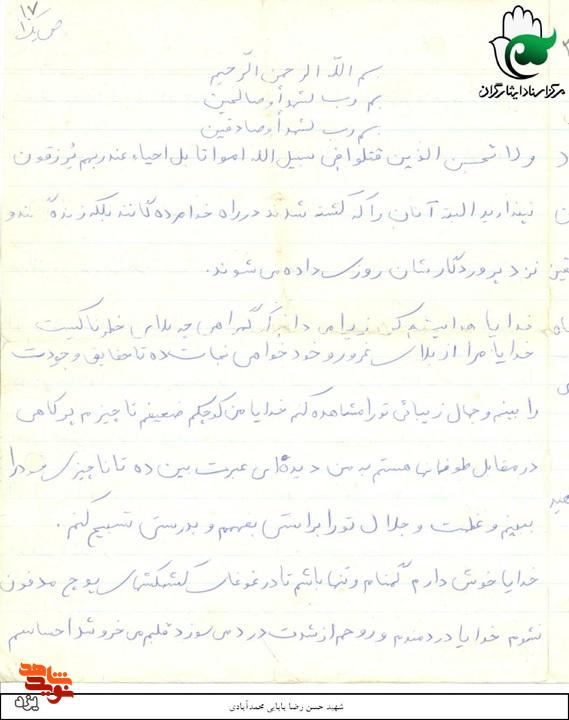 ۱۷
مرکز اسناد ایثارگران
بسم اللّه الرحمن الرّحیم
بسم رب لشهدأ و صالحین
بسم رب لشهدأ و صادقین
ولا تحسبن الذین قتلوا فی سبیل الله امواتا بل احیاء عند ربهم یُرزقون
نپندارید البته آنان را که کشته شدند در راه خدا مرده گانند بلکه زنده گانند و
نزد پروردگارشان روزی داده می شوند.
خدایا هدایتم کن زیرا می دانم که گمراهی چه بلای خطرناکیست
خدایا مرا از بلای غرور و خودخواهی نجات ده تا حقایق وجودت
را ببینم و جمال زیبائی تو را مشاهده کنم خدایا من کوچکم ضعیفم ناچیزم پر کاهی
در مقابل طوفانها هستم به من دیده ای عبرت بین ده تا ناچیزی خود را
ببینم و عظمت و جلال تو را براستی بفهمم و بدرستی تسبیح کنم.
خدایا خوش دارم گمنام و تنها باشم تا در غوغای کشمکشهای پوچ مدفون
نشوم خدایا دردمندم و روحم از شدت درد می سوزد قلبم می خروشد احساسم
نوید شاهد
یزد
شهید حسن رضا بابایی محمدآبادی